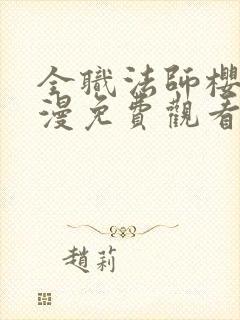 全職法師櫻
漫免費觀看
趙莉